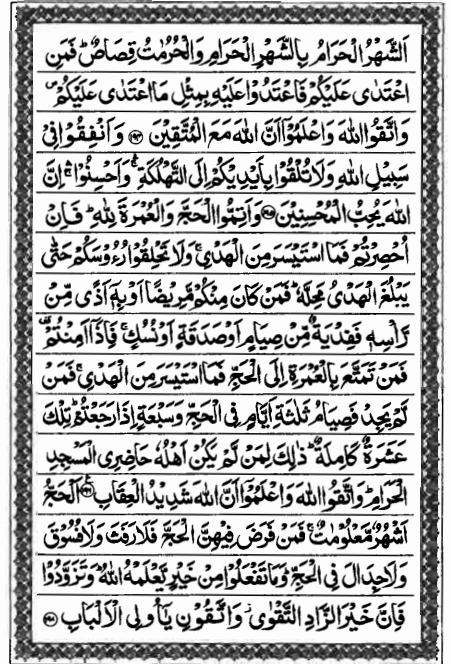 اَلشَّهْرُ الْحَرَامُ بِالشَّهْرِ الْحَرَامِ وَالْحُرُمٰتُ قِصَاصٌ ؕ فَمَنِ
اعْتَدٰى عَلَيْكُمْ فَاعْتَدُوْا عَلَيْهِ بِمِثْلِ مَا اعْتَدٰى عَلَيْكُمْ ۪
وَاتَّقُوا اللّٰهَ وَاعْلَمُوْۤا اَنَّ اللّٰهَ مَعَ الْمُتَّقِيْنَ ﴿۱۹۴﴾ وَاَنْفِقُوْا فِيْ
سَبِيْلِ اللّٰهِ وَلَا تُلْقُوْا بِاَيْدِيْكُمْ اِلَى التَّهْلُكَةِ ۛۚ وَاَحْسِنُوْا ۛۚ اِنَّ
اللّٰهَ يُحِبُّ الْمُحْسِنِيْنَ ﴿۱۹۵﴾ وَاَتِمُّوا الْحَجَّ وَالْعُمْرَةَ لِلّٰهِ ؕ فَاِنْ
اُحْصِرْتُمْ فَمَا اسْتَيْسَرَ مِنَ الْهَدْيِ ۚ وَلَا تَحْلِقُوْا رُءُوْسَكُمْ حَتّٰى
يَبْلُغَ الْهَدْيُ مَحِلَّهٗ ؕ فَمَنْ كَانَ مِنْكُمْ مَّرِيْضًا اَوْ بِهٖۤ اَذًى مِّنْ
رَّاْسِهٖ فَفِدْيَةٌ مِّنْ صِيَامٍ اَوْ صَدَقَةٍ اَوْ نُسُكٍ ۚ فَاِذَاۤ اَمِنْتُمْ ۥ
فَمَنْ تَمَتَّعَ بِالْعُمْرَةِ اِلَى الْحَجِّ فَمَا اسْتَيْسَرَ مِنَ الْهَدْيِ ۚ فَمَنْ
لَّمْ يَجِدْ فَصِيَامُ ثَلٰثَةِ اَيَّامٍ فِي الْحَجِّ وَسَبْعَةٍ اِذَا رَجَعْتُمْ ؕ تِلْكَ
عَشَرَةٌ كَامِلَةٌ ؕ ذٰلِكَ لِمَنْ لَّمْ يَكُنْ اَهْلُهٗ حَاضِرِي الْمَسْجِدِ
الْحَرَامِ ؕ وَاتَّقُوا اللّٰهَ وَاعْلَمُوْۤا اَنَّ اللّٰهَ شَدِيْدُ الْعِقَابِ ﴿۱۹۶﴾ اَلْحَجُّ
اَشْهُرٌ مَّعْلُوْمٰتٌ ۚ فَمَنْ فَرَضَ فِيْهِنَّ الْحَجَّ فَلَا رَفَثَ وَلَا فُسُوْقَ
وَلَا جِدَالَ فِي الْحَجِّ ؕ وَمَا تَفْعَلُوْا مِنْ خَيْرٍ يَّعْلَمْهُ اللّٰهُ ؔؕ وَتَزَوَّدُوْا
فَاِنَّ خَيْرَ الزَّادِ التَّقْوٰى ؗ وَاتَّقُوْنِ يٰۤاُولِي الْاَلْبَابِ ﴿۱۹۷﴾